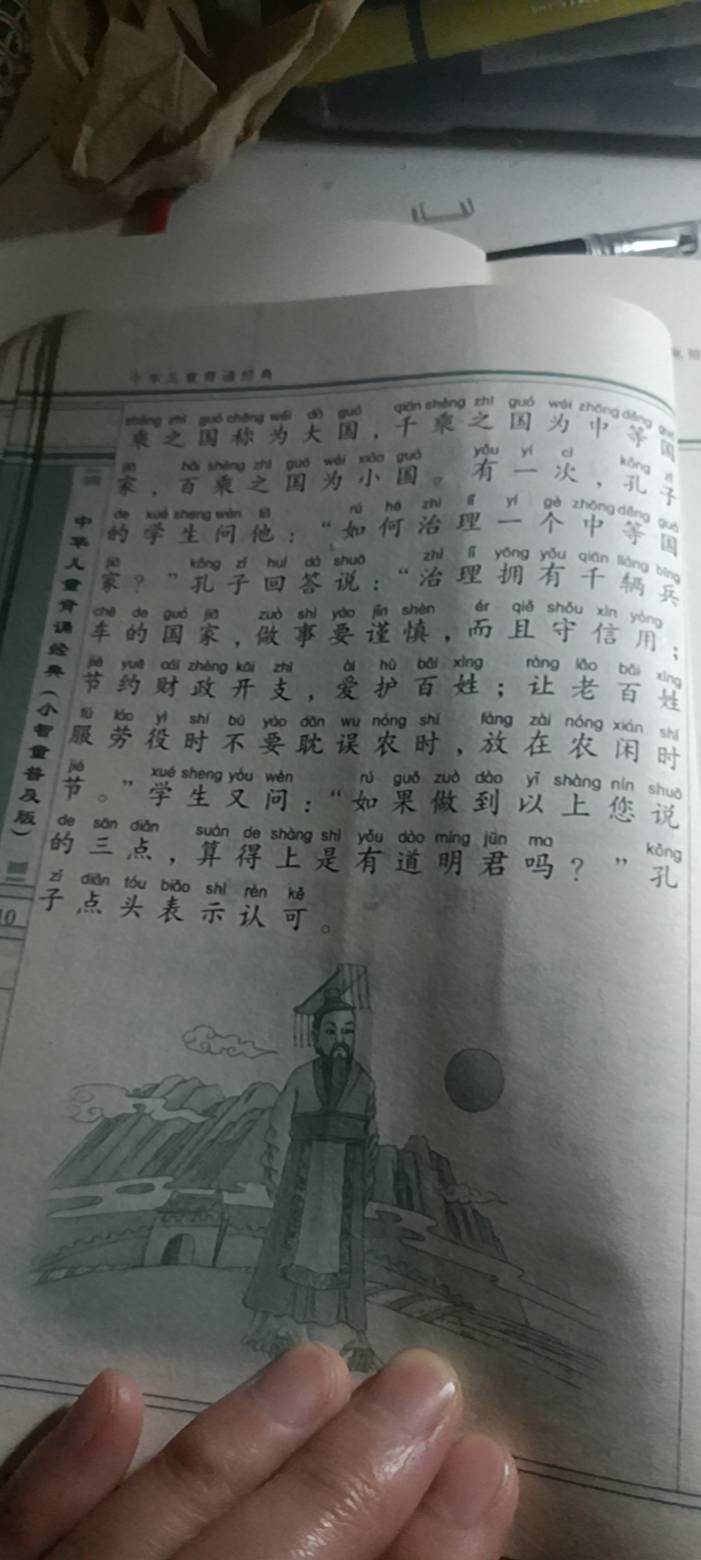 中华儿童背诵经典
shèng zhī guó chēng wéi dà guó qiān shèng zhī guó wéi zhōng děng guó
乘之国称为大国，千乘之国为中等国
jiā bǎi shèng zhī guó wéi xiǎo guó yǒu yí cì kǒng zǐ
家，百乘之国为小国。有一次，孔子
de xué sheng wèn tā rú hé zhì lǐ yí gè zhōng děng guó
的学生问他：“如何治理一个中等国
jiā kǒng zǐ huí dá shuō zhì lǐ yōng yǒu qiān liàng bīng
家？”孔子回答说：“治理拥有千辆兵
chē de guó jiā zuò shì yào jǐn shèn ér qiě shǒu xìn yòng
车的国家，做事要谨慎，而且守信用；
jié yuē cái zhèng kāi zhī ài hù bǎi xìng ràng lǎo bǎi xìng
节约财政开支，爱护百姓；让老百姓
fú láo yì shí bú yào dān wu nóng shí fàng zài nóng xián shí
服劳役时不要耽误农时，放在农闲时
jié xué sheng yòu wèn rú guǒ zuò dào yǐ shàng nín shuō
节。”学生又问：“如果做到以上您说
de sān diǎn suàn de shàng shì yǒu dào míng jūn ma kǒng
的三点，算得上是有道明君吗？”孔
zǐ diǎn tóu biǎo shì rèn kě
子点头表示认可。
中华儿童背诵经典（小智童普及版）
10